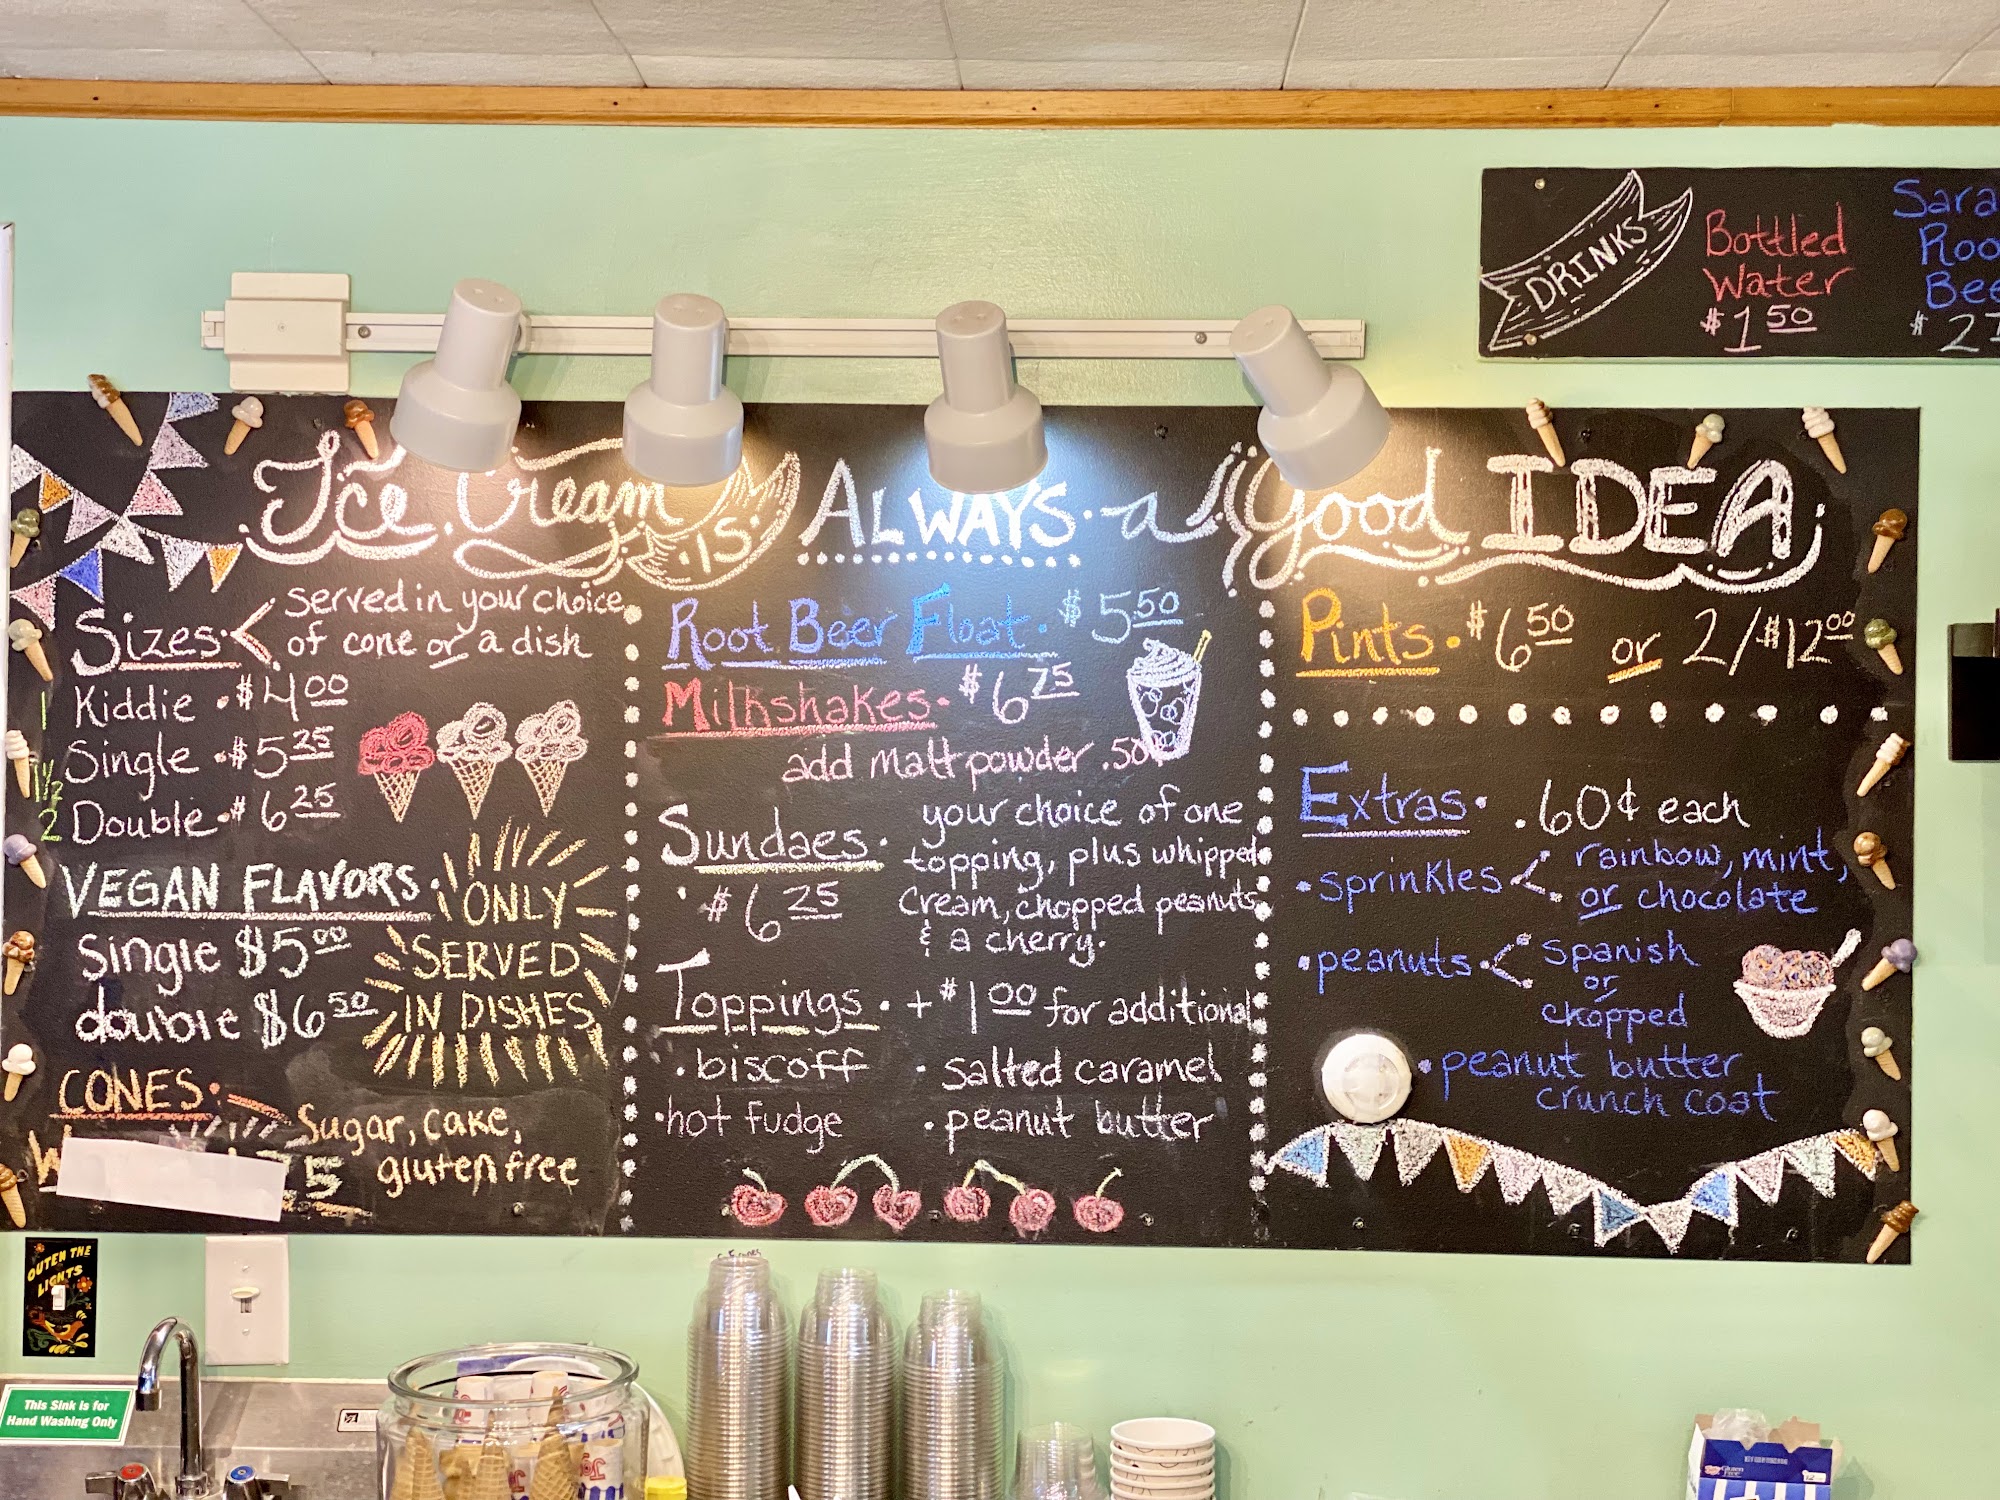 Ice Cream is Always a Good IDEA
Sizes served in your choice
of cone or a dish
Kiddie $4.00
1 Single $5.25
1 1/2
2 Double $6.25
VEGAN FLAVORS
single $5.00
double $6.50
ONLY
SERVED
IN DISHES
CONES
Sugar, cake,
gluten free
Root Beer Float $5.50
Milkshakes $6.75
add malt powder .50
Sundaes
$6.25
your choice of one
topping, plus whipped
cream, chopped peanuts
& a cherry.
Toppings + $1.00 for additional
• biscoff
• salted caramel
• hot fudge
• peanut butter
Pints $6.50 or 2/$12.00
Extras .60¢ each
• sprinkles
rainbow, mint,
or chocolate
• peanuts
Spanish
or
chopped
• peanut butter
crunch coat
DRINKS
Bottled
Water
$1.50
Sara
Roo
Bee
$2
OUTEN THE
LIGHTS
This Sink is for
Hand Washing Only
Joy
Gluten
Free